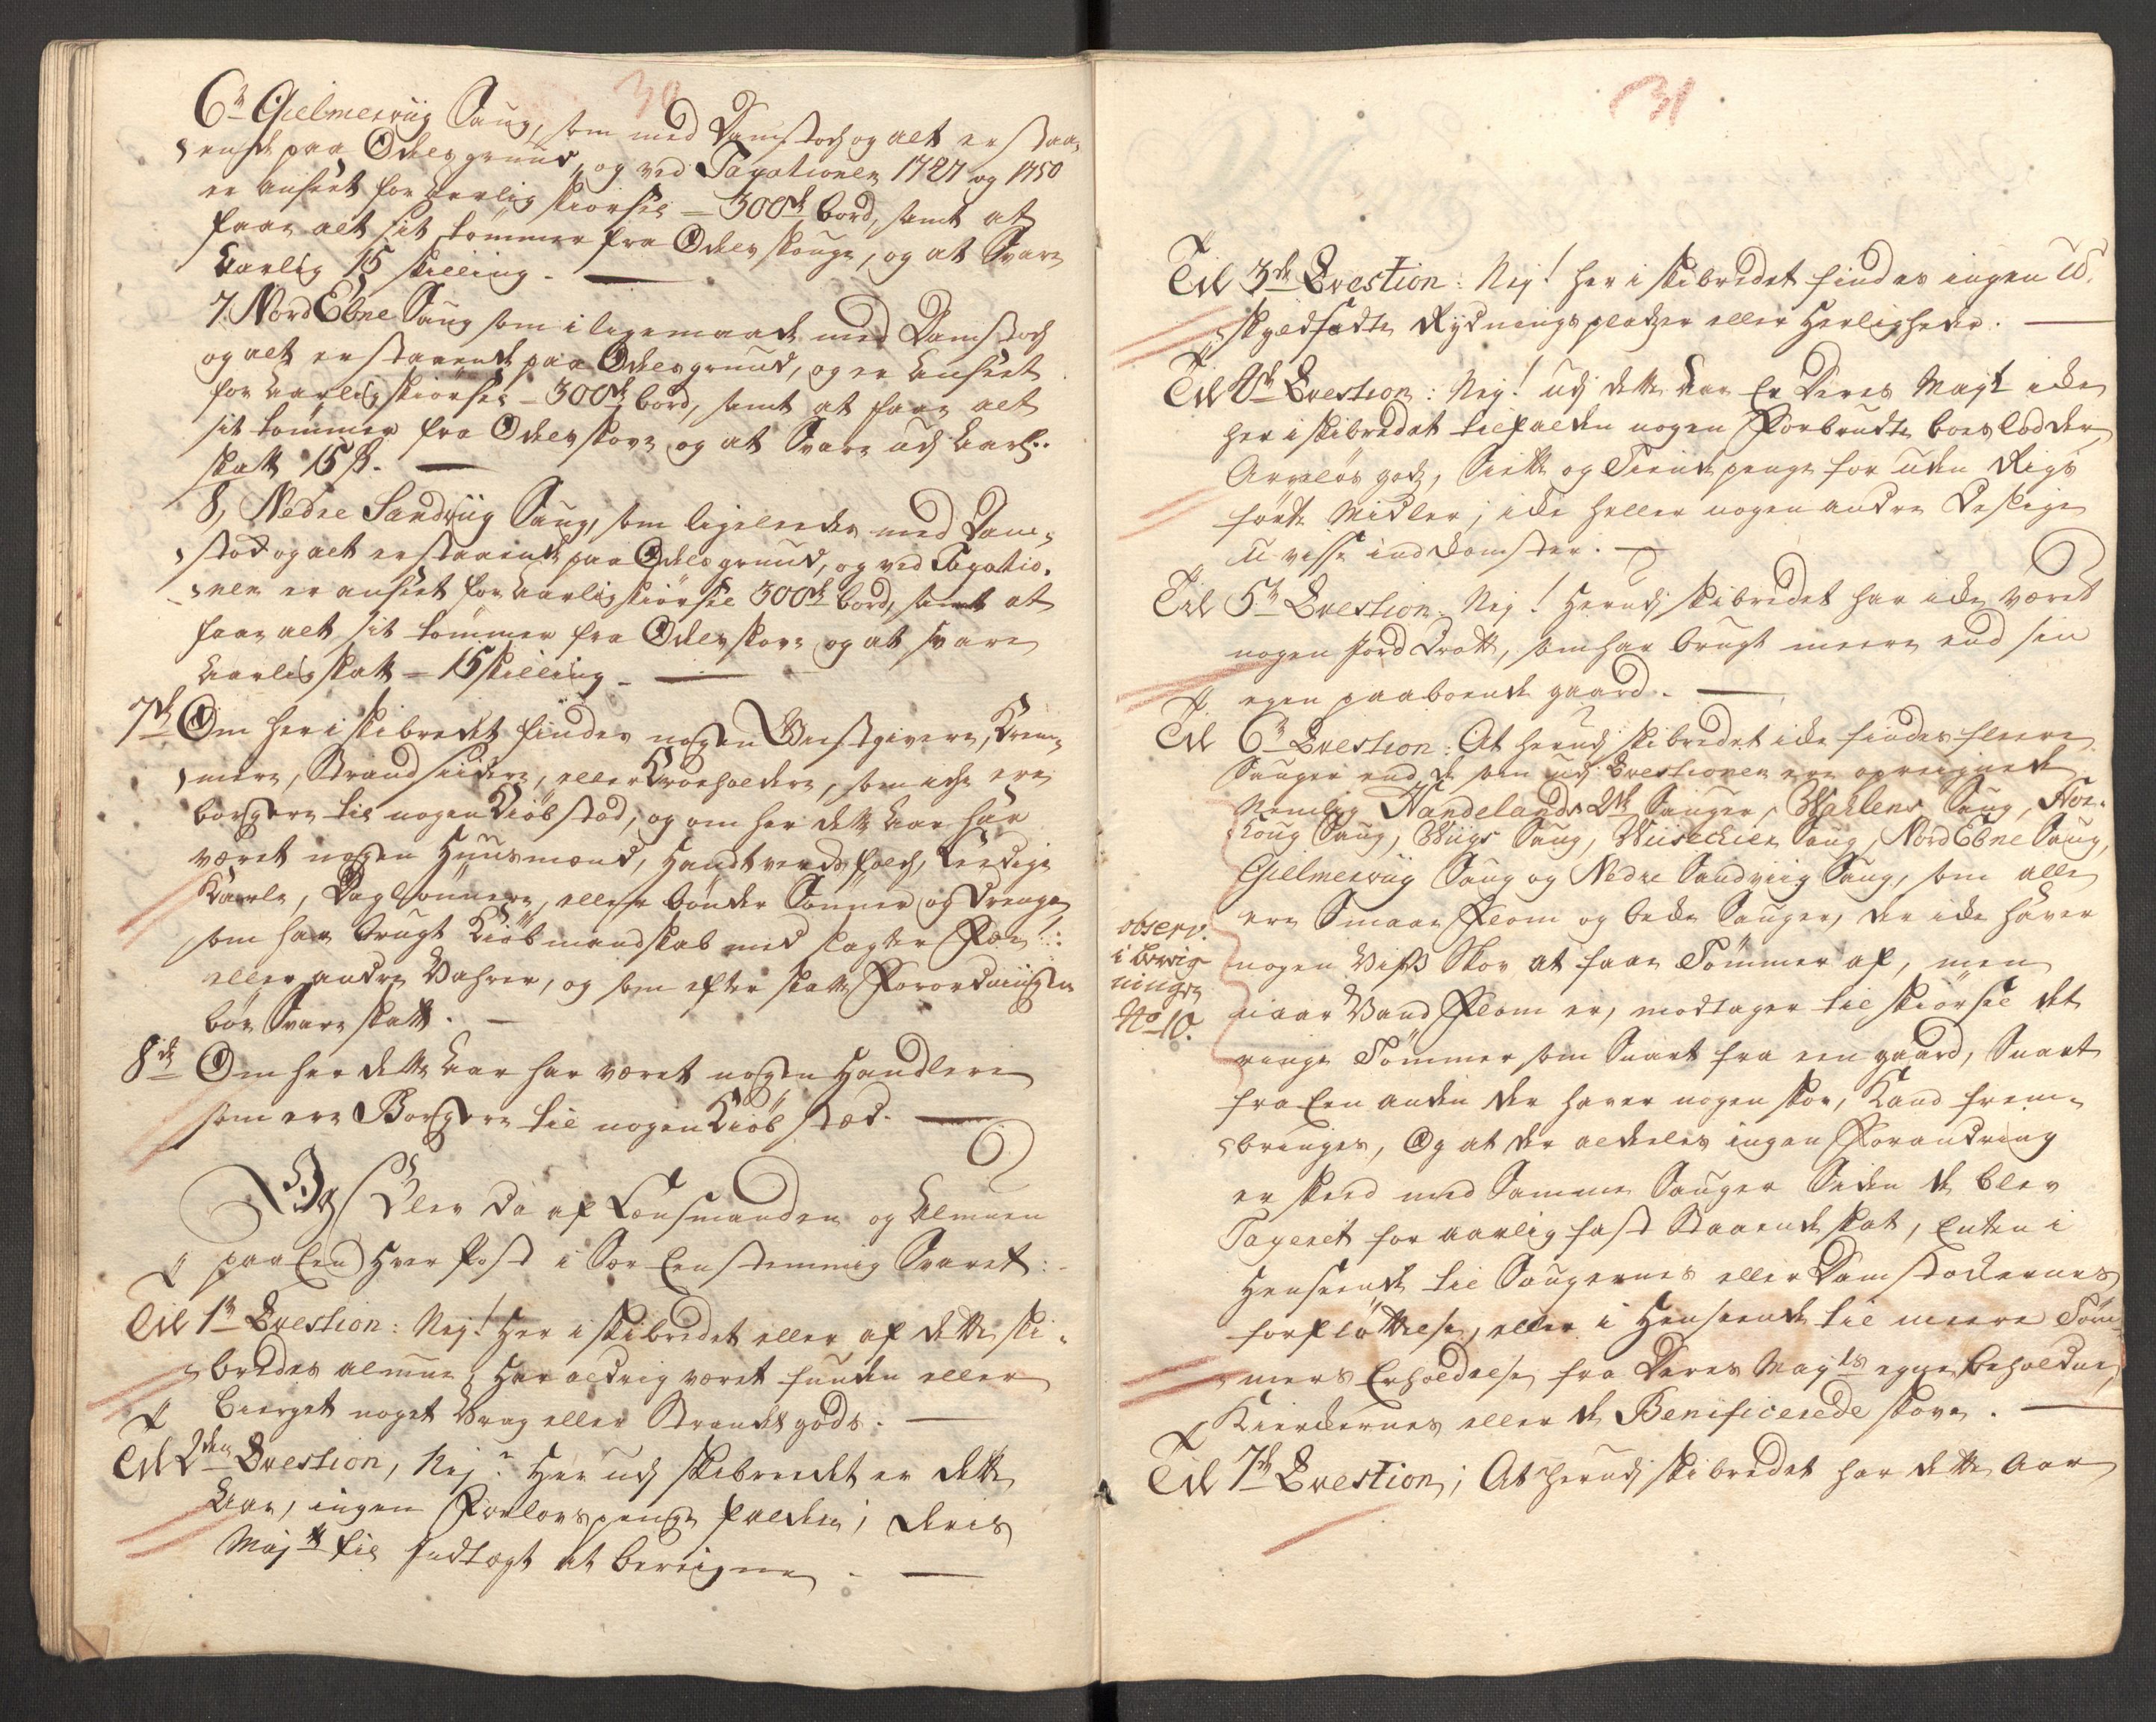 30
6te Gielmerviig Saug, som med Damstoch og alt er staa-
ende paa Odelsgrund, og ved Taxationen 1727 og 1750
er anseet for aarlig skiørsel - 300de bord, samt at
faar alt sit tømmer fra Odelsskouge, og at Svare
Aarlig 15 skilling.
7. Nord Ebne Saug som i ligemaade med Damstoch
og alt er staaende paa Odelsgrund, og er anseet
for Aarlig skiørsel - 300de bord, samt at faar alt
sit tømmer fra Odelsskove og at Svare udj Aarl:
skatt 15 s.
8, Nedre Sandviig Saug, som ligeleedes med Dam-
stok og alt er staaende paa Odelsgrund, og ved Taxatio-
nen er anseet for Aarlig skiørsel 300de bord, samt at
faar alt sit tømmer fra Odelsskove og at svare
Aarlig skatt - 15 skilling.
7de Om her i skibredet findes nogen Giestgivere, Krem-
mere, Strandsiddere, eller Kroeholdere, som iche ere
borgere til nogen Kiøbstad, og om her dette Aar har
været nogen Huusmænd, Handtverchsfolch, Leedige
Karle, Daglønnere, eller bønder Sønner og Drenge
som har brugt Kiøbmandskab med slagter Fæe
eller andre Vahrer, og som efter skatte Forordningen
bør Svare skatt.
8de Om her dette Aar har været nogen Handlere
som ere Borgere til nogen Kiøbstæd.
Og blev da af Lensmanden og Almuen
paa Een Hver Post i Sær Eenstemmig Svaret:
Til 1te Qvestion: Nej! Her i skibredet eller af dette ski-
bredes almue, har aldrig været funden eller
bierget noget Vrag eller Strandegods.
Til 2den Qvestion, Nej! Her udj skibreedet er dette
Aar, ingen Forlovspenge falden, deris
Majtt til Indtægt at bereigne.
31
Til 3de Qvestion: Nej! her i skibredet findes ingen U-
skyldsadte Rydningspladzer eller Herligheder.
Til 4de Qvestion: Nej! udj dette Aar Er Deres Majt icke
her i skibredet tilfalden nogen Forbrudte boeslodder
Arveløs godz, Siette og Tiende penge for uden Rigs
førte Midler, icke heller nogen andre Deslige
u visse indkomster.
Til 5te Qvestion. Nej! Herudj skibredet har icke været
nogen Jord Drott, som har brugt meere end sin
egen paaboende gaard.
Til 6te Qvestion: At herudj skibredet icke findes fleere
Sauger end de som udj Qvestionen ere opreignede
Nemlig Handelands 2de Sauger, Wahlens Saug, Hor-
koug Saug, Wiigs Saug, Nord Ebne Saug,
Gielmerviig Saug og Nedre Sandviig Saug, som alle
ere Smaae Flom og becke Sauger, der icke haver
nogen Viss Skov at faae Tømmer af, men
naar Vand Flom er, modtager til skiørsel det
ringe Tømmer som Snart fra een gaard, Snart
fra Een anden der haver nogen skov, Kand frem-
bringes, Og at der aldeles ingen Forandring
er skeed med Samme Sauger Siden de blev
Taxeret for aarlig fast Staaende skat, Enten i
Henseende til Saugernes eller Damstockernes
forfløttelse, eller i Henseende til meere Tøm-
mers Erholdelse fra Deres Majts egne beholdne,
Kierckernes eller de Benificerede skove.
observ.
i
ningen
No 10.
Til 7de Qvestion; At herudj skibredet har dette Aar